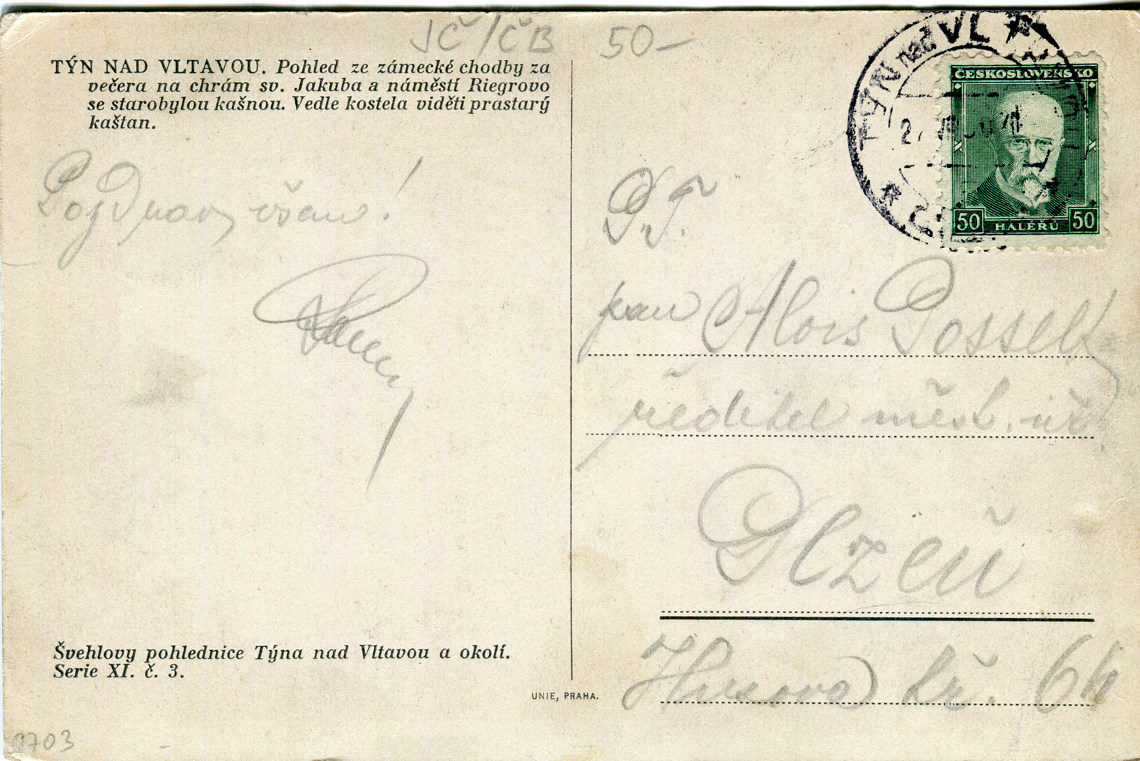 JČ/ČB 50-
TÝN NAD VLTAVOU. Pohled ze zámecké chodby za
večera na chrám sv. Jakuba a náměstí Riegrovo
se starobylou kašnou. Vedle kostela viděti prastarý
kaštan.
TÝN nad VL
ČESKOSLOVENSKO
50 HALÉŘŮ 50
P.T.
pan Alois Posselt
ředitel měst. úř.
Plzeň
Husova tř.
Švehlovy pohlednice Týna nad Vltavou a okolí.
Serie XI. č. 3.
UNIE, PRAHA.